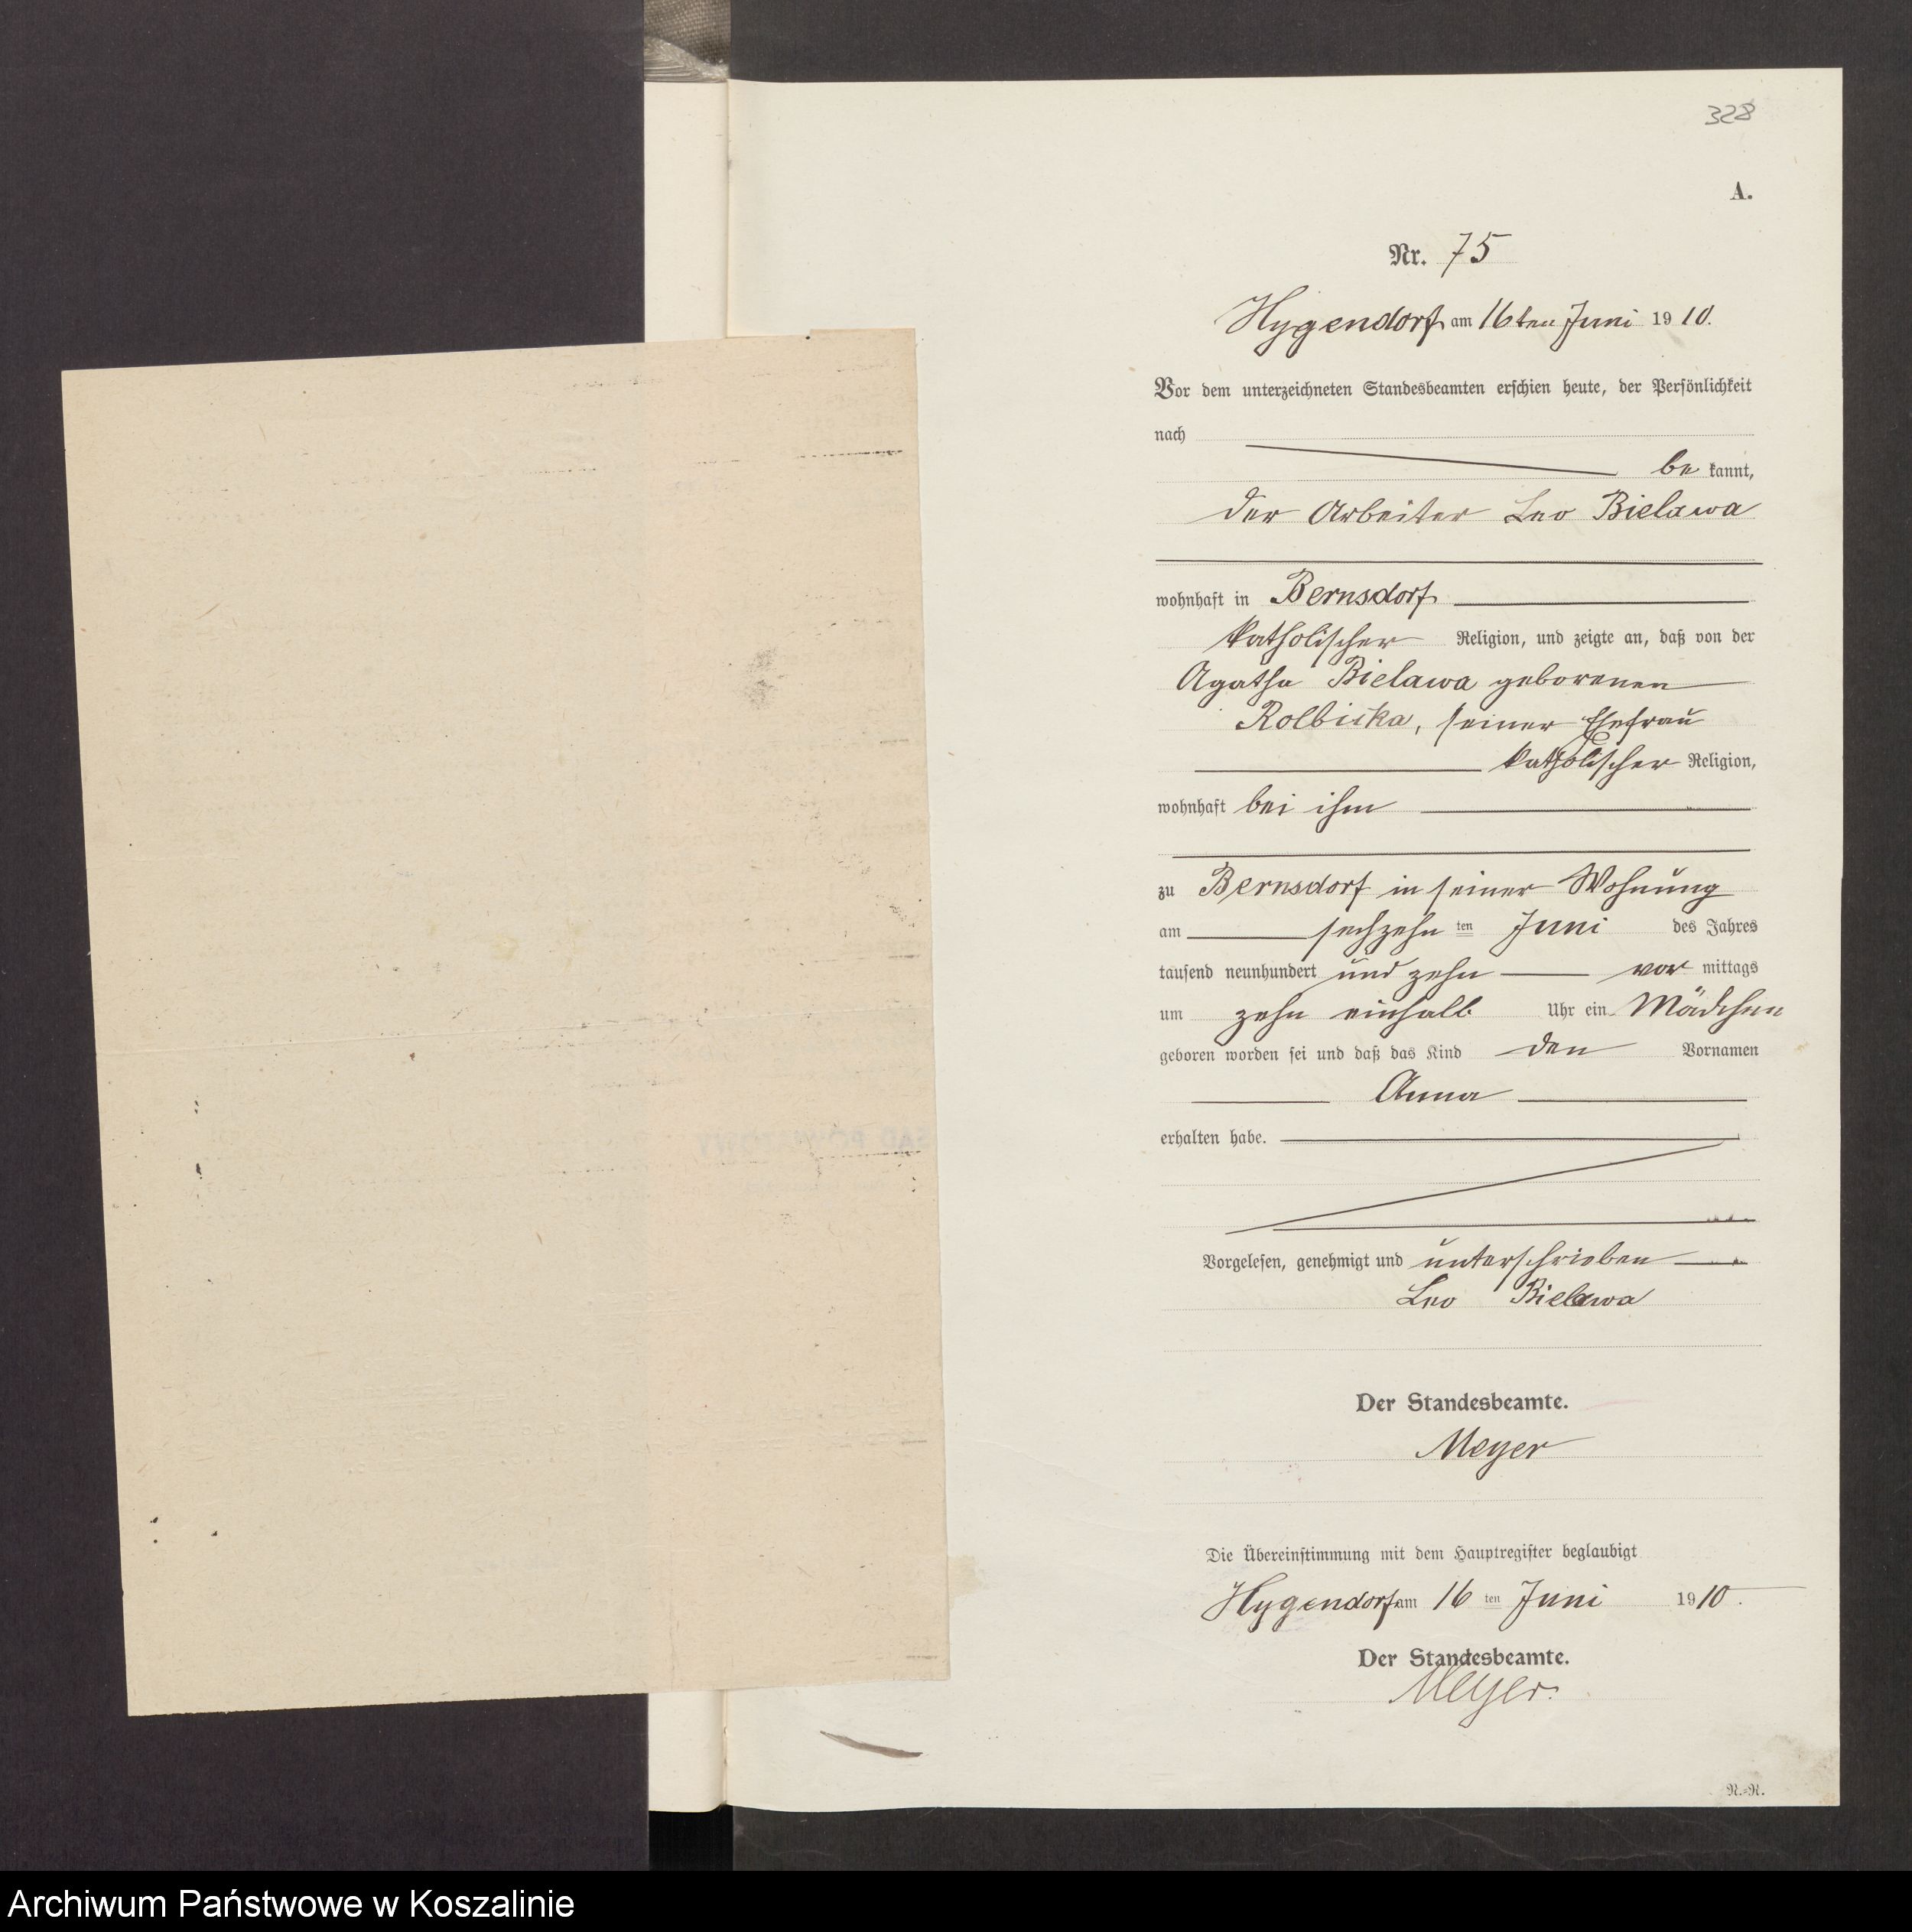 328
A.
Nr. 75
Hygendorf am 16ten Juni 1910.
Vor dem unterzeichneten Standesbeamten erschien heute, der Persönlichkeit
nach
be kannt,
der Arbeiter Leo Bielawa
wohnhaft in Bernsdorf
katholischer Religion, und zeigte an, daß von der
Agatha Bielawa geborenen
Rolbicka, seiner Ehefrau
katholischer Religion,
wohnhaft bei ihm
zu Bernsdorf in seiner Wohnung
am sechzehn ten Juni des Jahres
tausend neunhundert und zehn vor mittags
um zehn einhalb Uhr ein Mädchen
geboren worden sei und daß das Kind den Vornamen
Anna
erhalten habe.
Vorgelesen, genehmigt und unterschrieben
Leo Bielawa
Der Standesbeamte.
Meyer
Die Übereinstimmung mit dem Hauptregister beglaubigt
Hygendorf am 16 ten Juni 1910.
Der Standesbeamte.
Meyer.
N.-N.
Archiwum Państwowe w Koszalinie